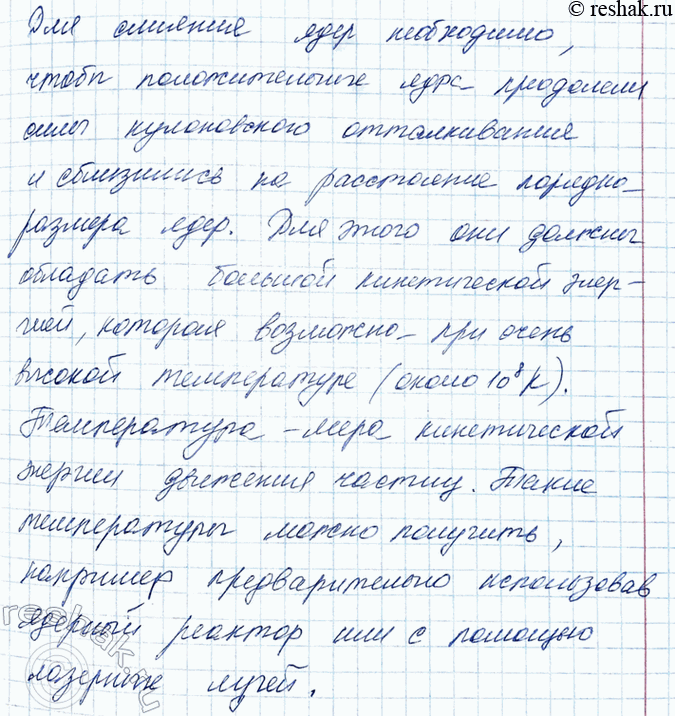 © reshak.ru
Для слияния ядер необходимо,
чтобы положительные ядра преодолели
силы кулоновского отталкивания
и сблизились на расстояние порядка
размера ядер. Для этого они должны
обладать большой кинетической энер-
гией, которая возможно при очень
высокой температуре (около 10⁸ К).
Температура - мера кинетической
энергии движения частиц. Такие
температуры можно получить,
например предварительно использовав
ядерный реактор или с помощью
лазерных лучей.
reshak.ru